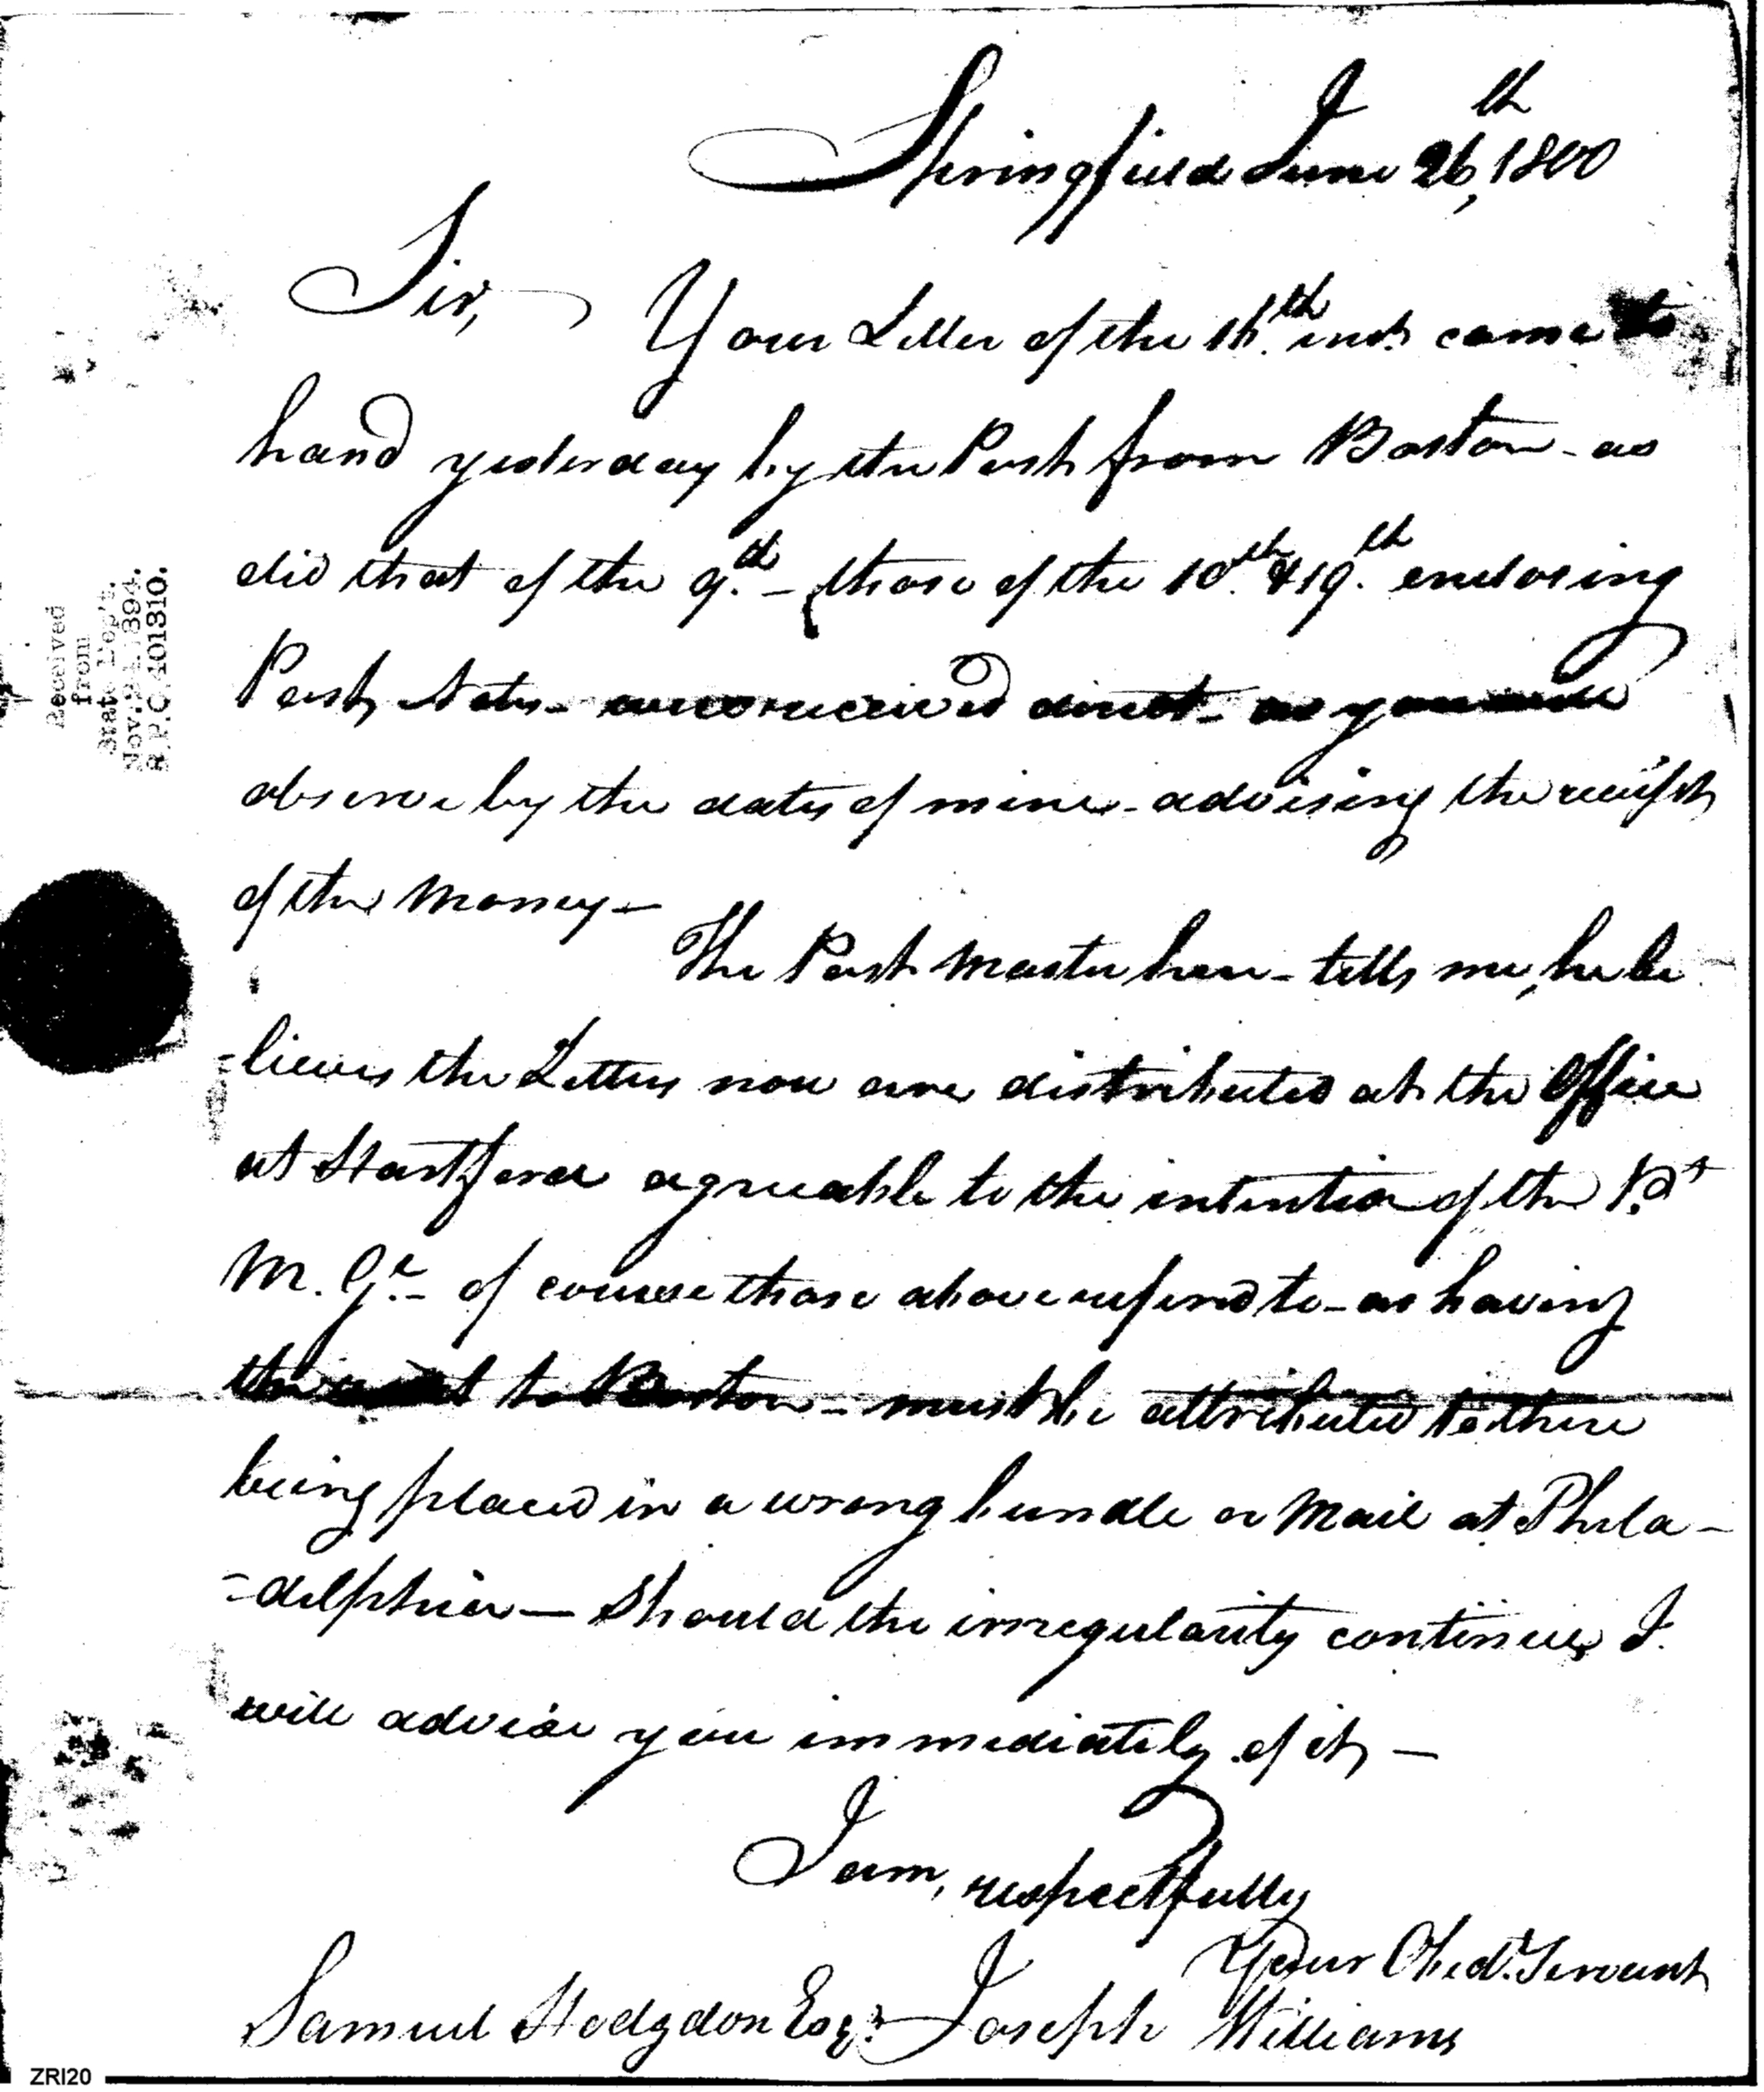 Springfield June 26th, 1800
Sir, Your Letter of the 16th inst. came to
hand yesterday by the Post from Boston - as
did that of the 9th. - those of the 10th. & 19th. enclosing
Post Notes - were received direct - as you will
observe by the dates of mine - advising the receipt
of the Money -
The Post Master here - tells me, he be
-lieves the Letters now are distributed at the Office
at Hartford agreeable to the intention of the P.st
M. Gl. - of course those above referred to - as having
to Boston - must be attributed to there
being placed in a wrong bundle or Mail at Phila -
-delphia - Should the irregularity continue, I
will advise you immediately of it, -
I am, respectfully
Your Obed.t Servant
Samuel Hodgdon Esqr. Joseph Williams
Received
from
State Dep't.
Nov. 21. 1894.
R.P.O. 401310.
ZRI20